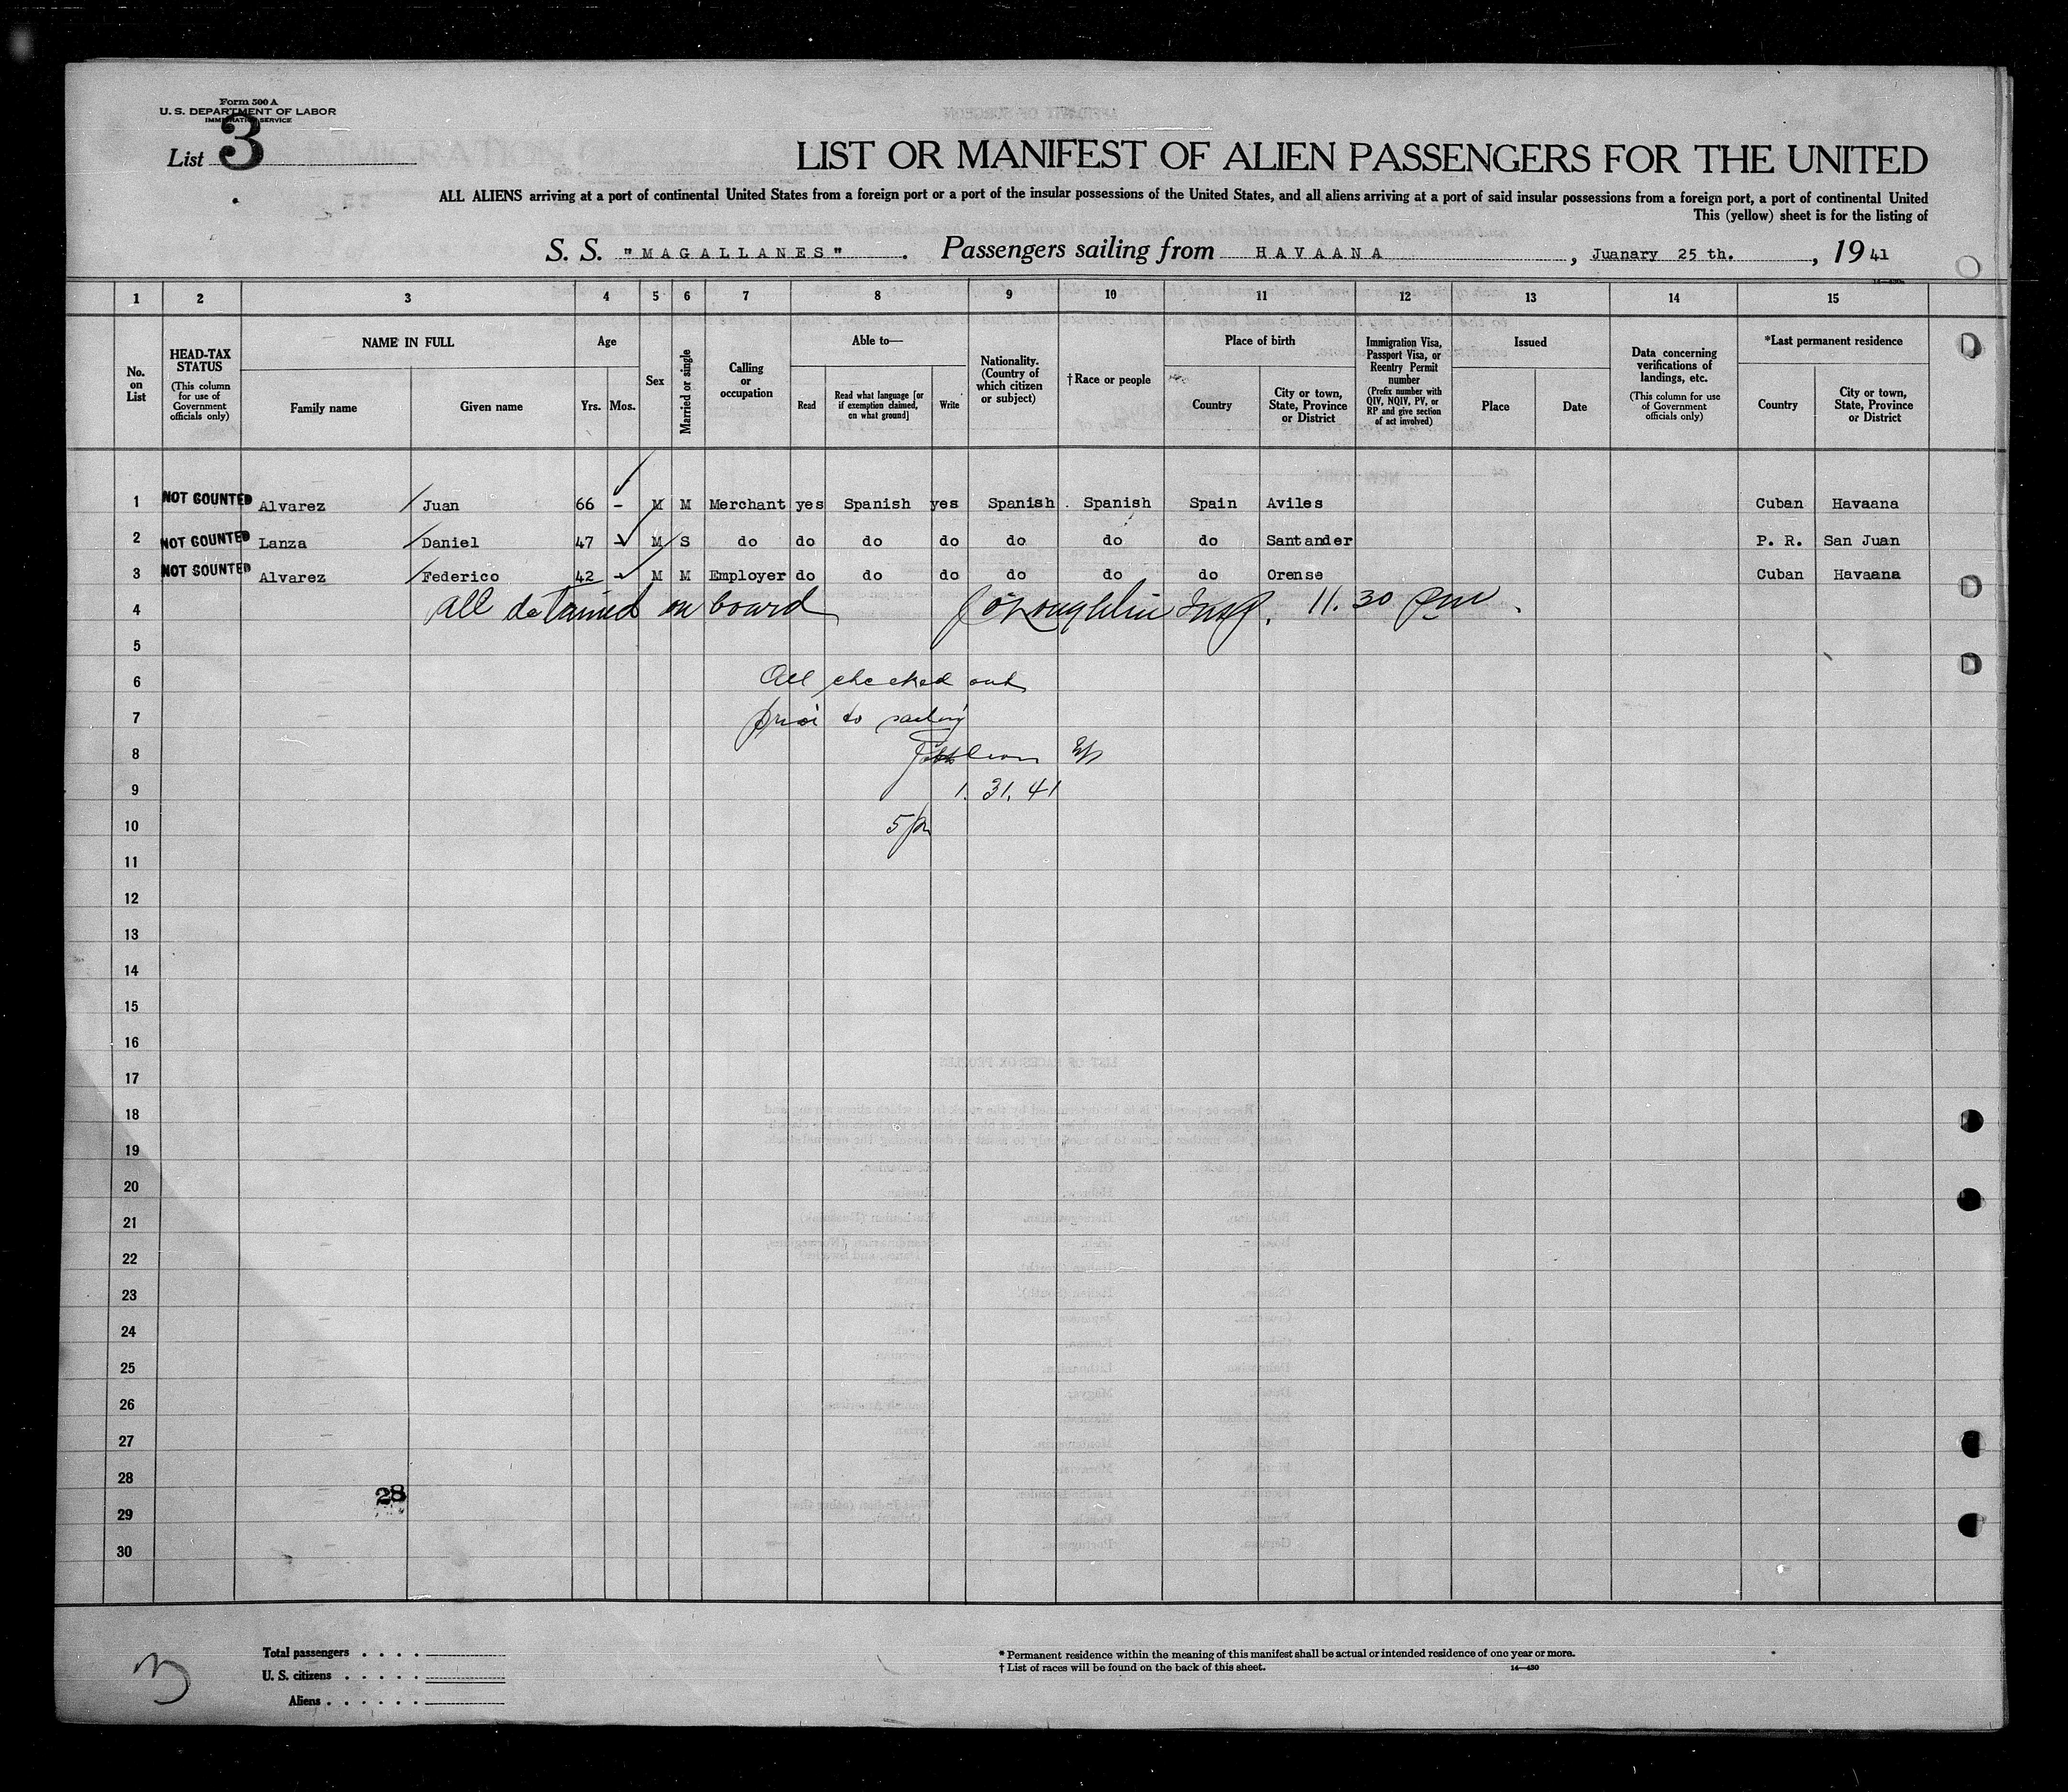 Form 500 A
U. S. DEPARTMENT OF LABOR
IMMIGRATION SERVICE
List 3
LIST OR MANIFEST OF ALIEN PASSENGERS FOR THE UNITED
ALL ALIENS arriving at a port of continental United States from a foreign port or a port of the insular possessions of the United States, and all aliens arriving at a port of said insular possessions from a foreign port, a port of continental United
This (yellow) sheet is for the listing of
S. S. "MAGALLANES". Passengers sailing from HAVAANA, Juanary 25 th., 19 41
1 2 3 4 5 6 7 8 9 10 11 12 13 14 15
No. on List
HEAD-TAX STATUS (This column for use of Government officials only)
NAME IN FULL
Family name Given name
Age
Yrs. Mos.
Sex
Married or single
Calling or occupation
Able to—
Read Read what language [or if exemption claimed, on what ground] Write
Nationality. (Country of which citizen or subject)
†Race or people
Place of birth
Country City or town, State, Province or District
Immigration Visa, Passport Visa, or Reentry Permit number (Prefix number with QIV, NQIV, PV, or RP and give section of act involved)
Issued
Place Date
Data concerning verifications of landings, etc. (This column for use of Government officials only)
*Last permanent residence
Country City or town, State, Province or District
1 NOT COUNTED Alvarez Juan 66 - M M Merchant yes Spanish yes Spanish Spanish Spain Aviles Cuban Havaana
2 NOT COUNTED Lanza Daniel 47 - M S do do do do do do do Santander P. R. San Juan
3 NOT COUNTED Alvarez Federico 42 - M M Employer do do do do do do Orense Cuban Havaana
4 all detained on board J O'Loughlin Insp. 11.30 pm.
5
6 All checked out
7 prior to sailing
8
9 1. 31. 41
10 5 pm
11
12
13
14
15
16
17
18
19
20
21
22
23
24
25
26
27
28
28
29
30
Total passengers . . . .
U. S. citizens . . . . .
Aliens . . . . . .
* Permanent residence within the meaning of this manifest shall be actual or intended residence of one year or more.
† List of races will be found on the back of this sheet.
14—430
3